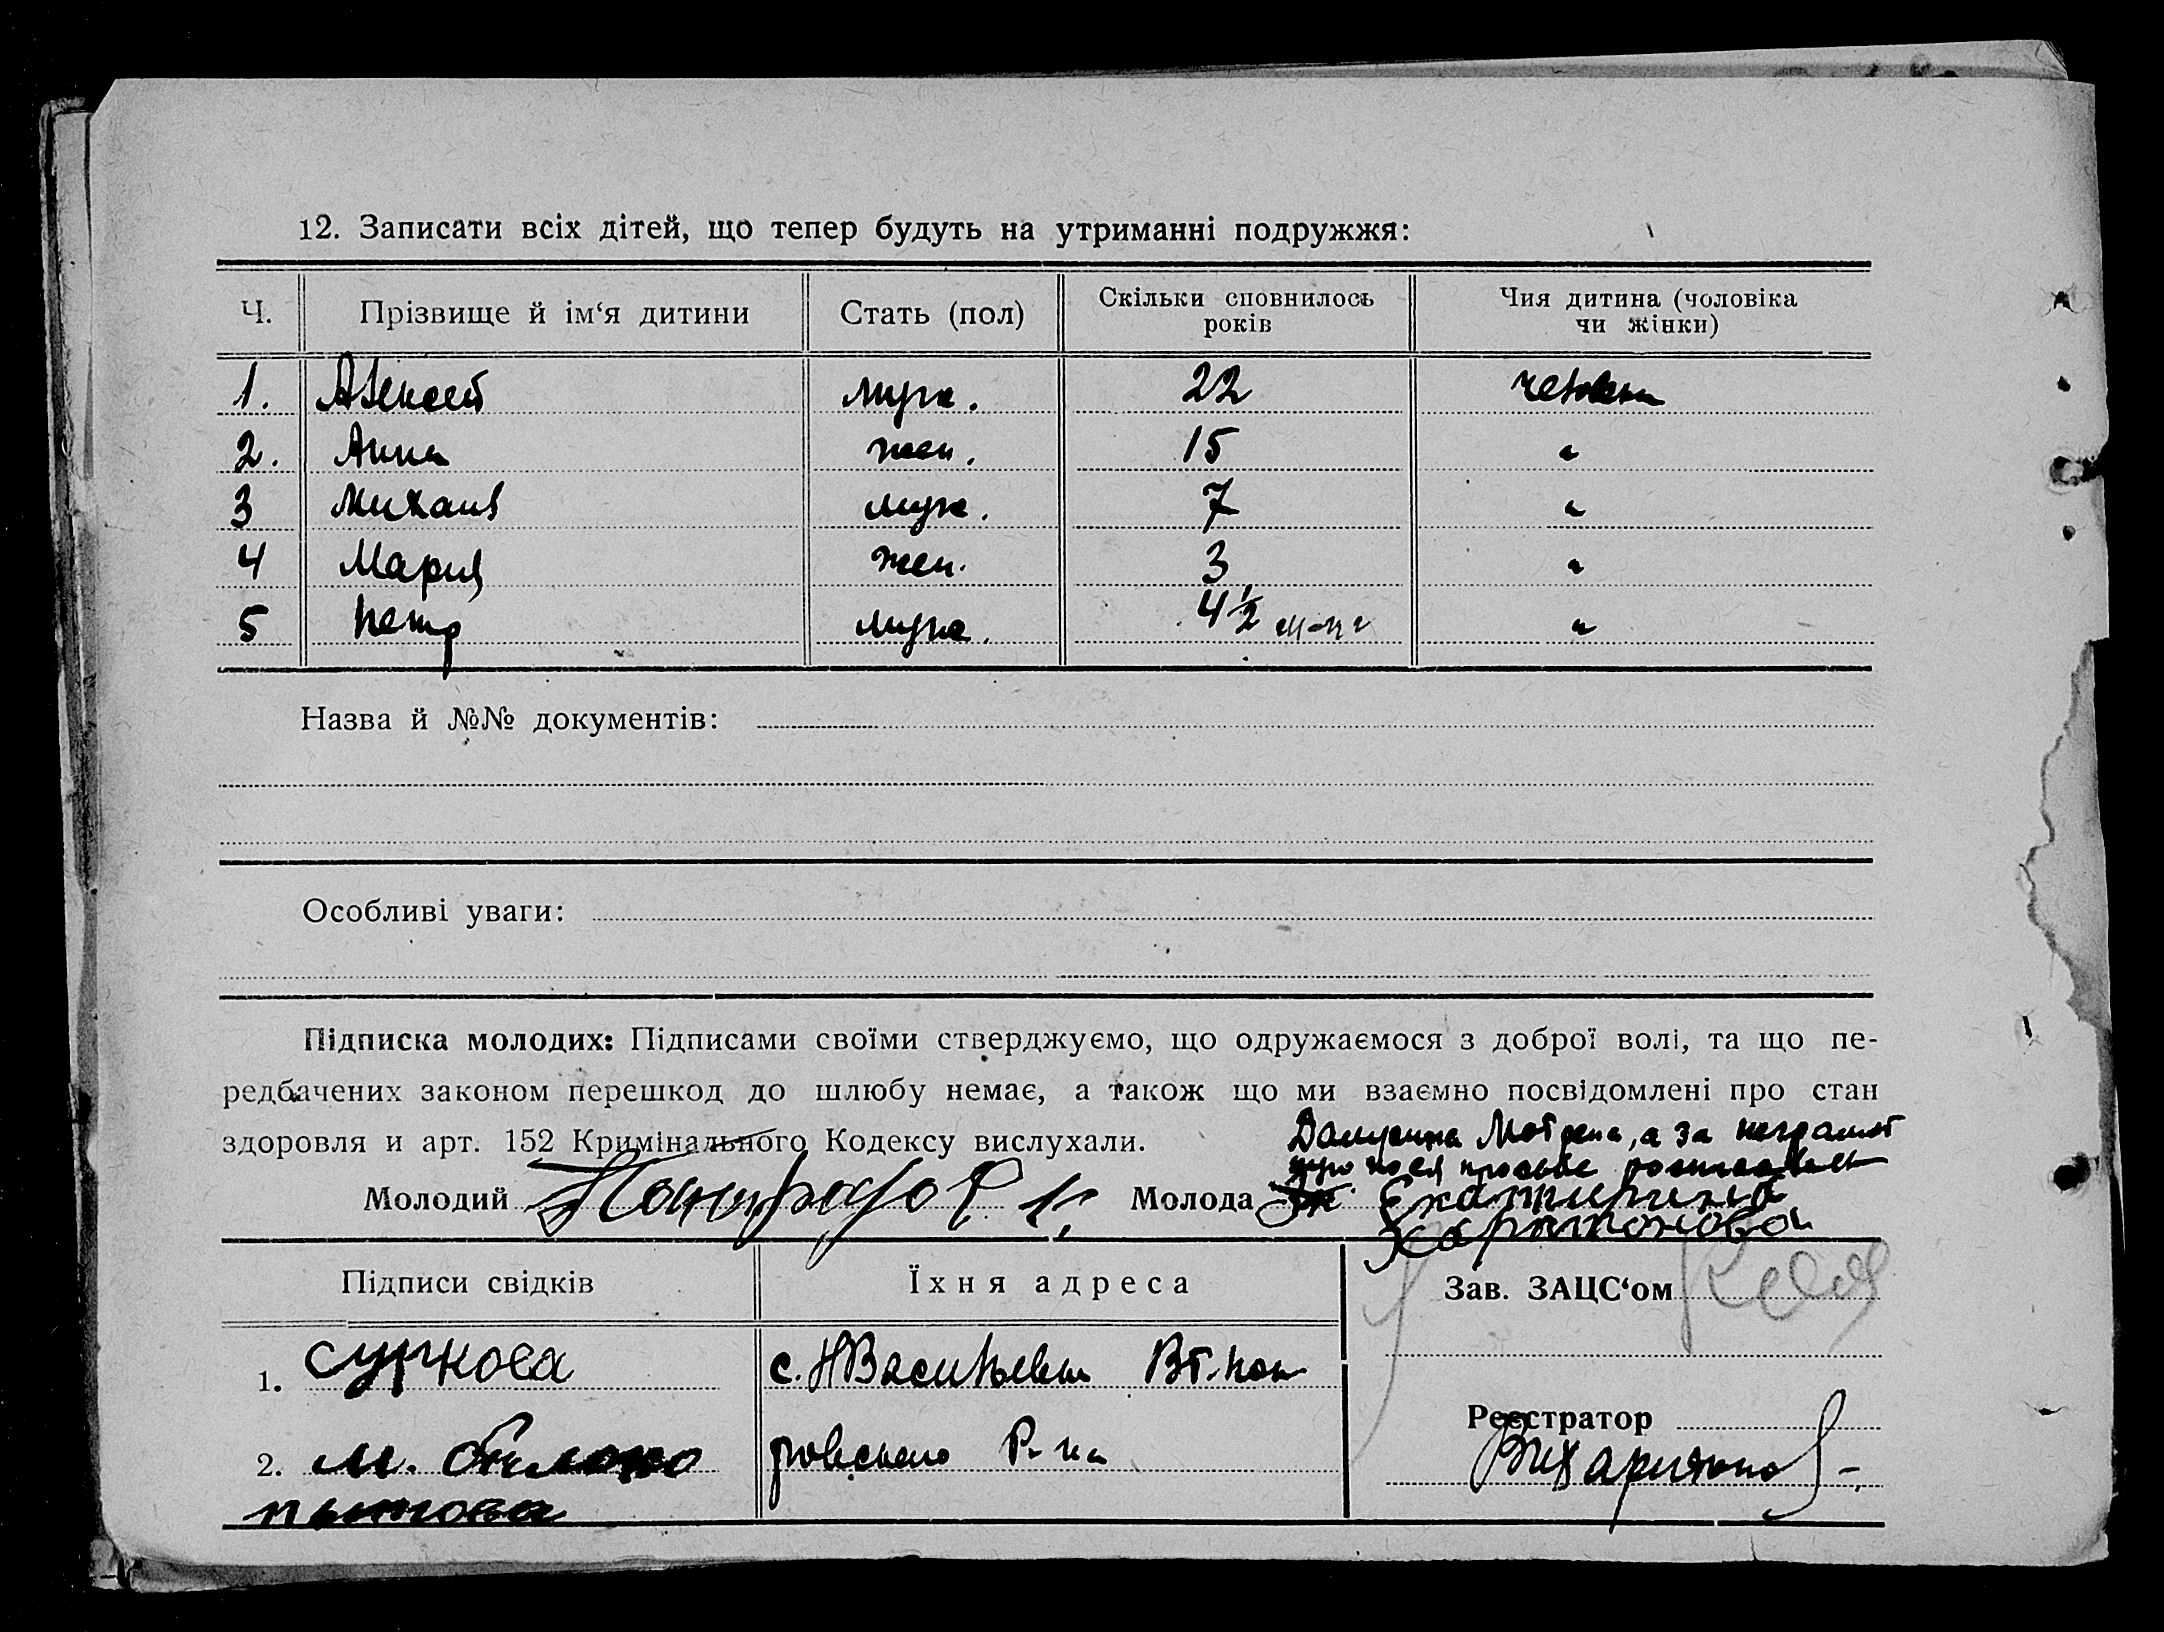 12. Записати всіх дітей, що тепер будуть на утриманні подружжя:
Ч. Прізвище й ім‘я дитини Стать (пол) Скільки сповнилось років Чия дитина (чоловіка чи жінки)
1. Алексей муж. 22
2. Анна жен. 15 "
3 Михаил муж. 7 "
4 Мария жен. 3 "
5 Петр муж. 4 1/2 "
Назва й №№ документів:
Особливі уваги:
Підписка молодих: Підписами своїми стверджуємо, що одружаємося з доброї волі, та що пе-
редбачених законом перешкод до шлюбу немає, а також що ми взаємно посвідомлені про стан
здоровля и арт. 152 Кримінального Кодексу вислухали.
Мотрена, а за неграмот
просьбе
Молодий Молода Екатирина
Харитонова
Підписи свідків Їхня адреса Зав. ЗАЦС‘ом
1. с. НВасильевка Вт. Пок
Реєстратор
2. М. ровского Р-на